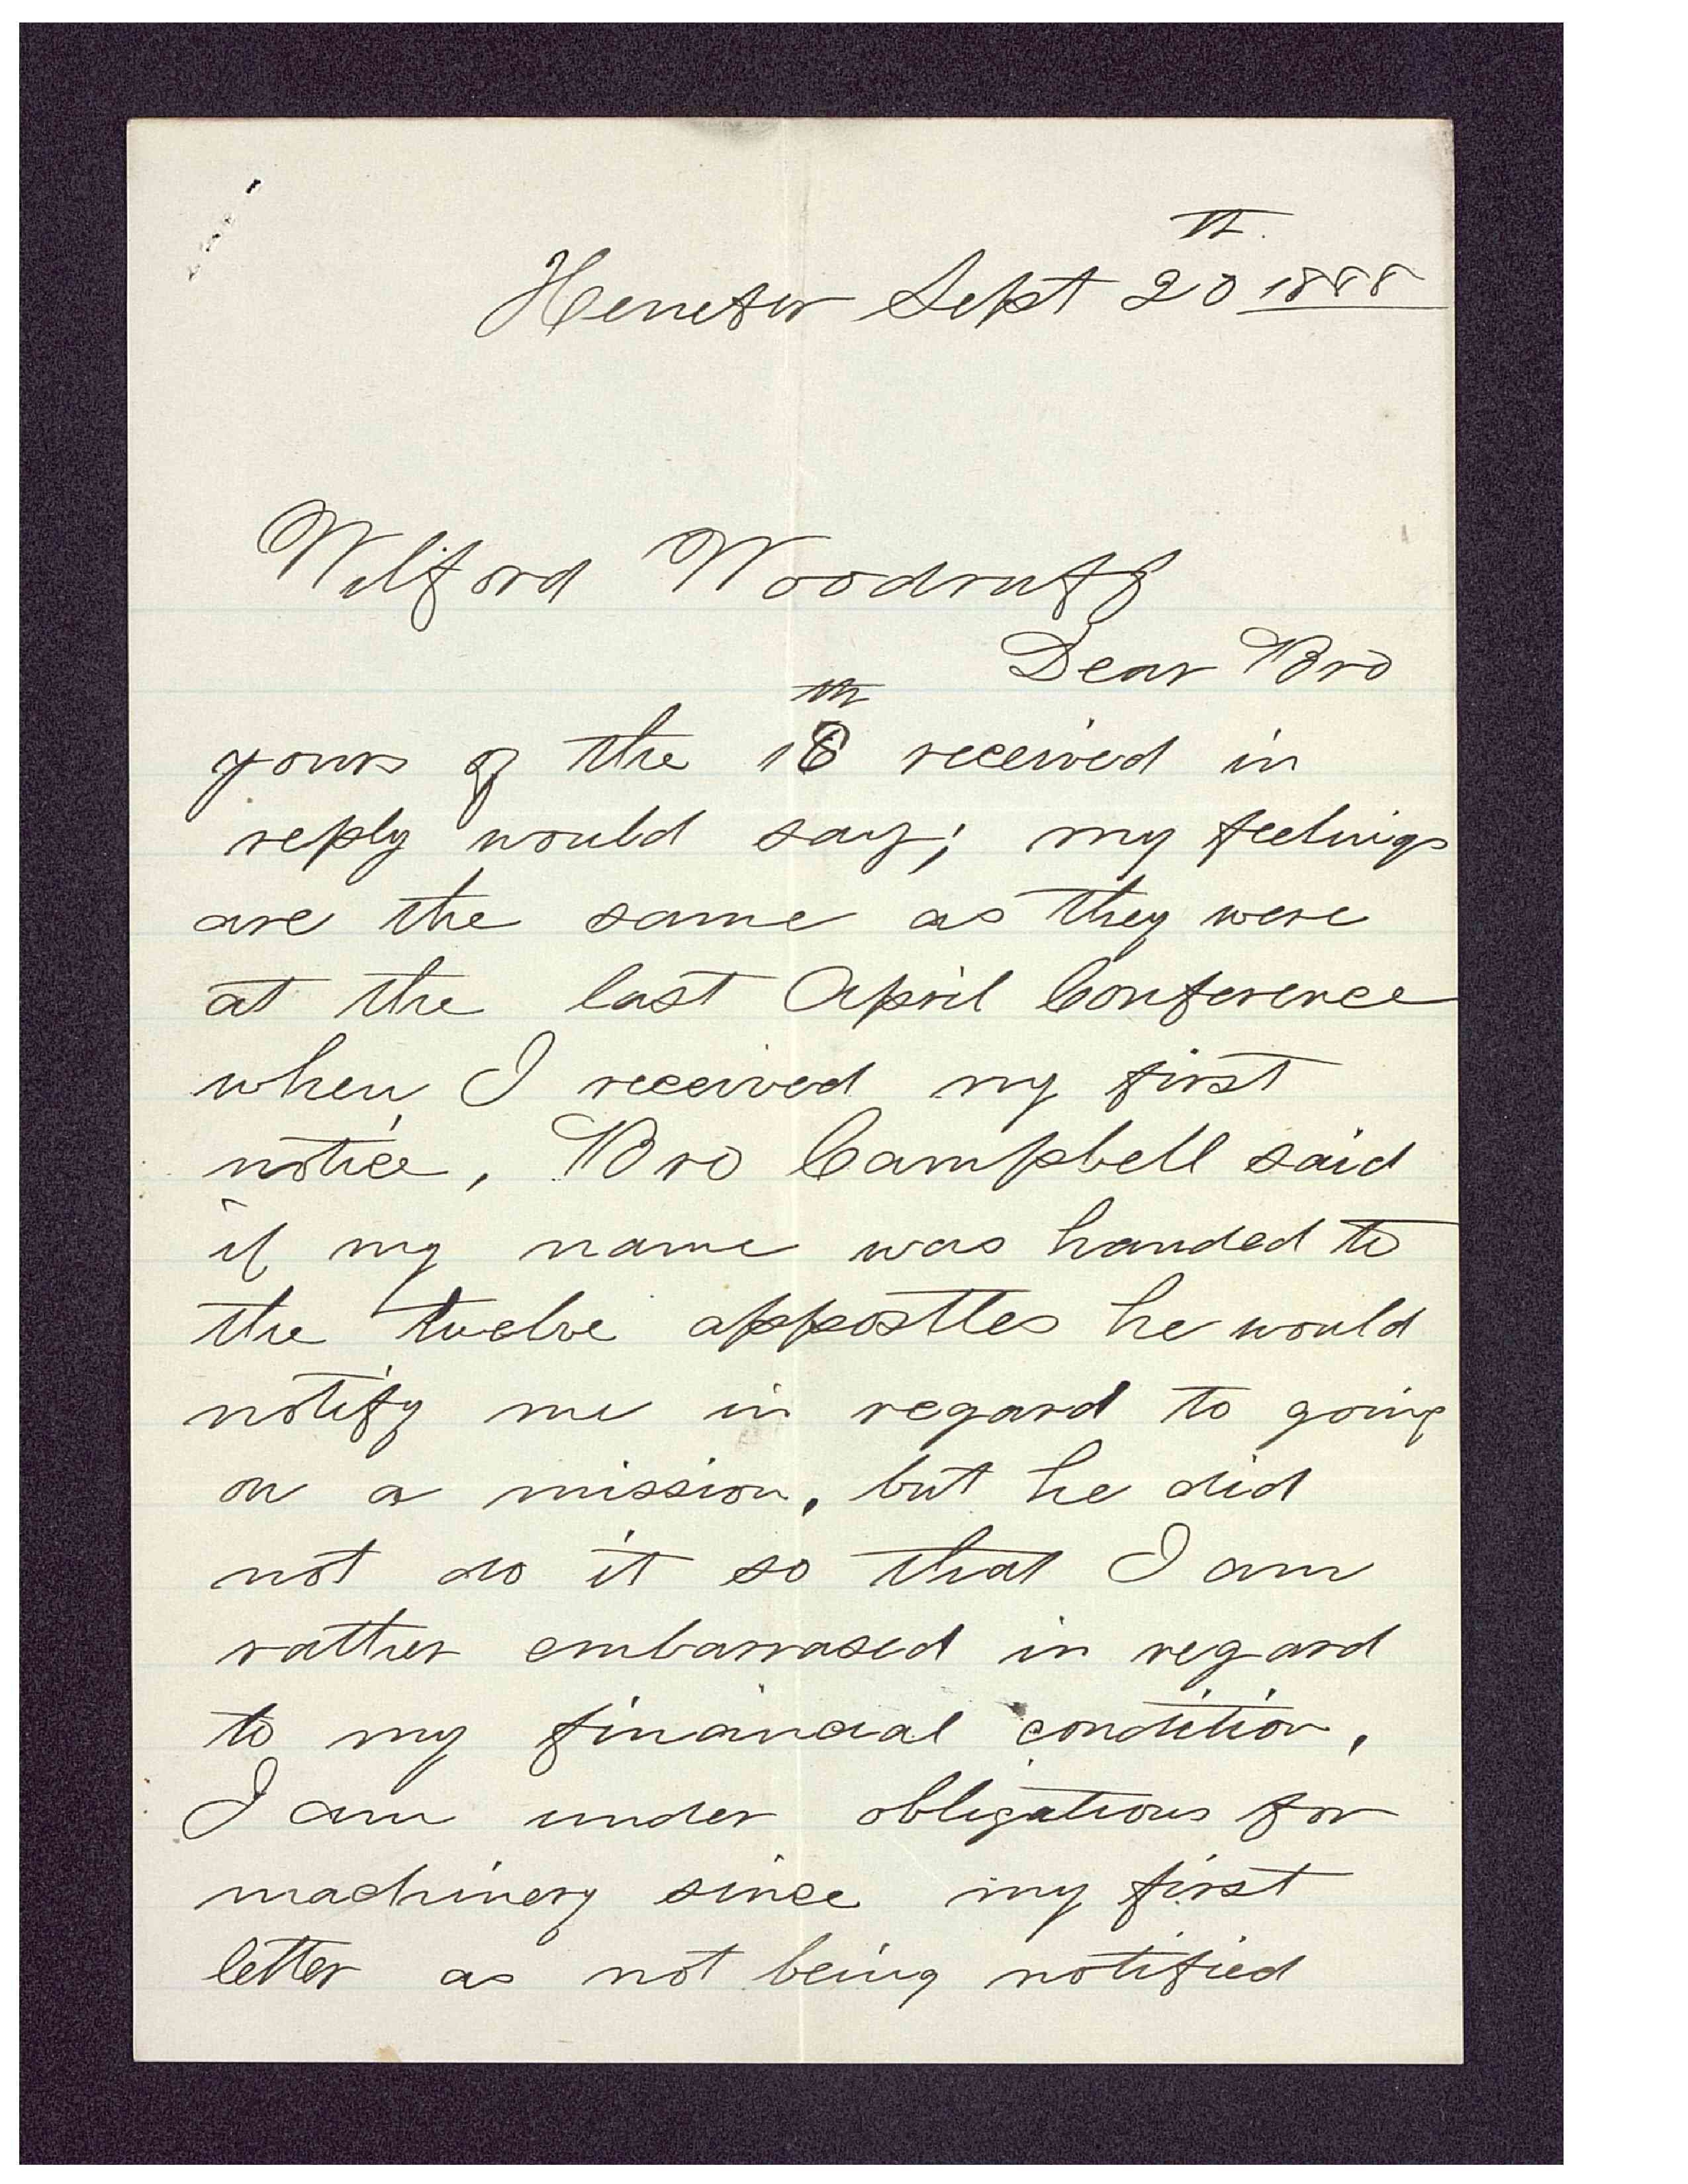 Henefer Sept 20th 1888
Wilford Woodruff
Dear Bro
yours of the 18th received in
reply would say; my feelings
are the same as they were
at the last April Conference
when I received my first
notice, Bro Campbell said
if my name was handed to
the twelve appostles he would
notify me in regard to going
on a mission, but he did
not do it so that I am
rather embarrased in regard
to my financial condition,
I am under obligations for
machinery since my first
letter as not being notified